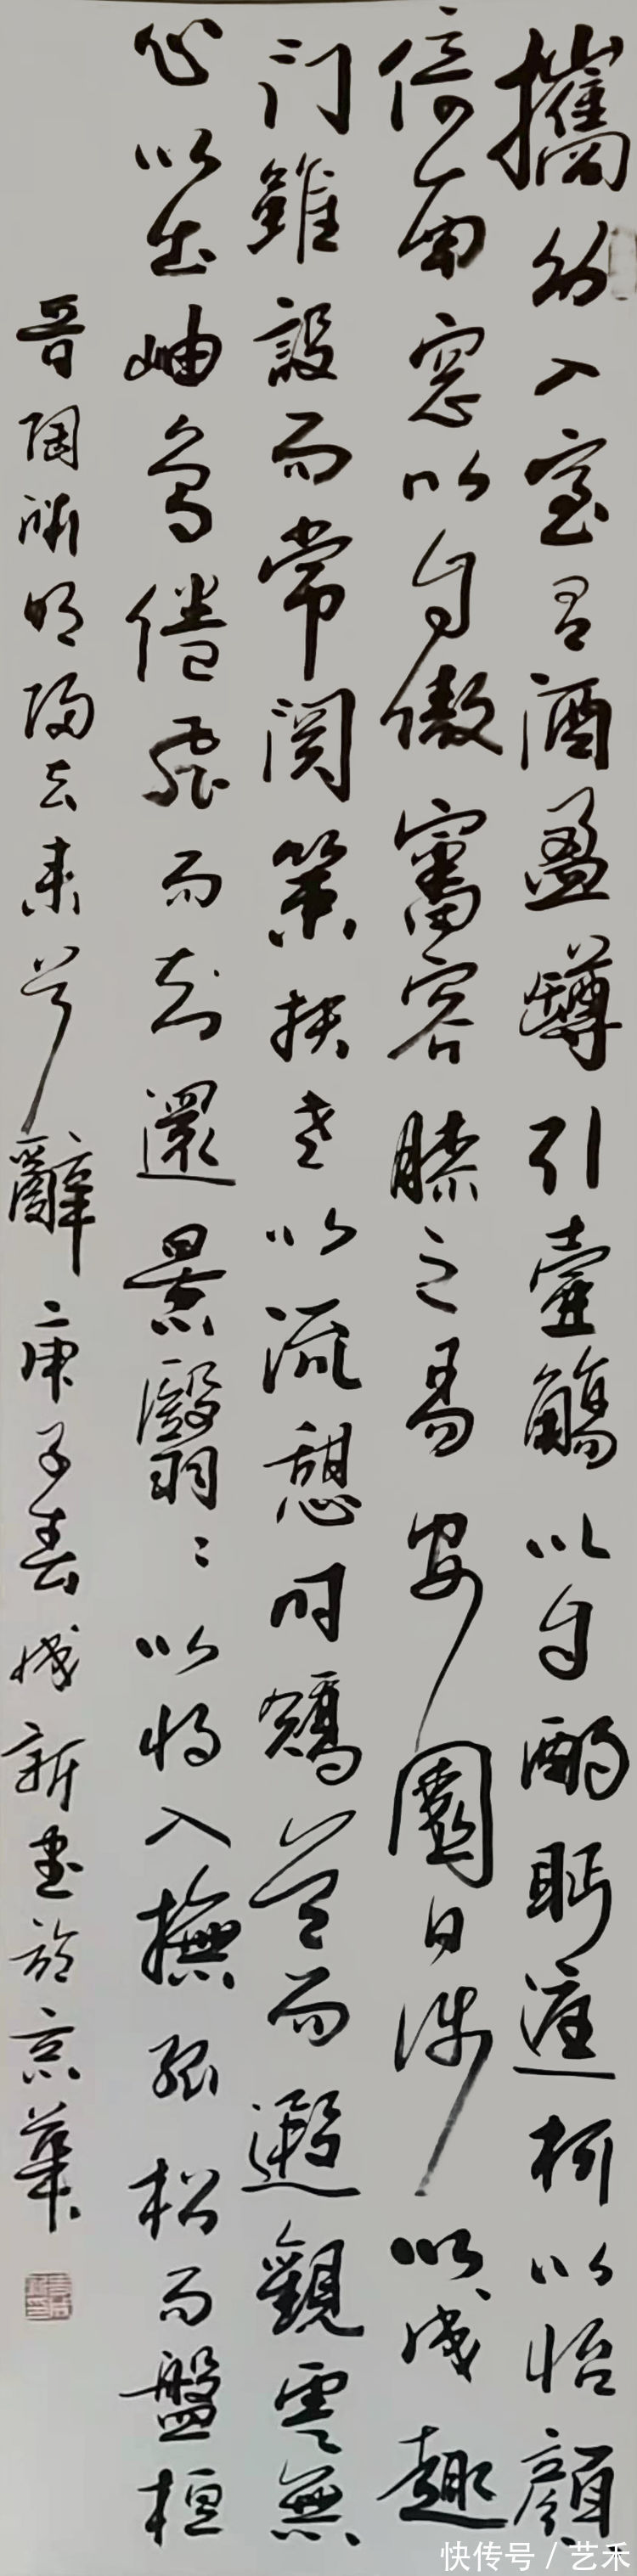 攜幼入室有酒盈罇引壺觴以自酌眄庭柯以怡顏
倚南窓以自傲審容膝之易安園日涉以成趣
门雖設而常関策扶老以流憩时矯首而遐觀雲無
心以出岫鳥倦飛而知還景翳〻以将入撫孤松而盤桓
晉陶淵明歸去来兮辭庚子春成新书於京華
快传号/艺禾